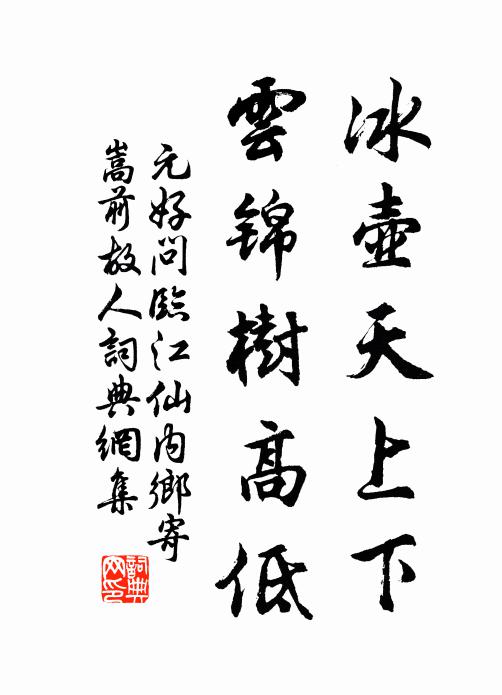 冰壺天上下
雲錦樹高低
元好問臨江仙內鄉寄
嵩前故人詞典網集
詞典網印